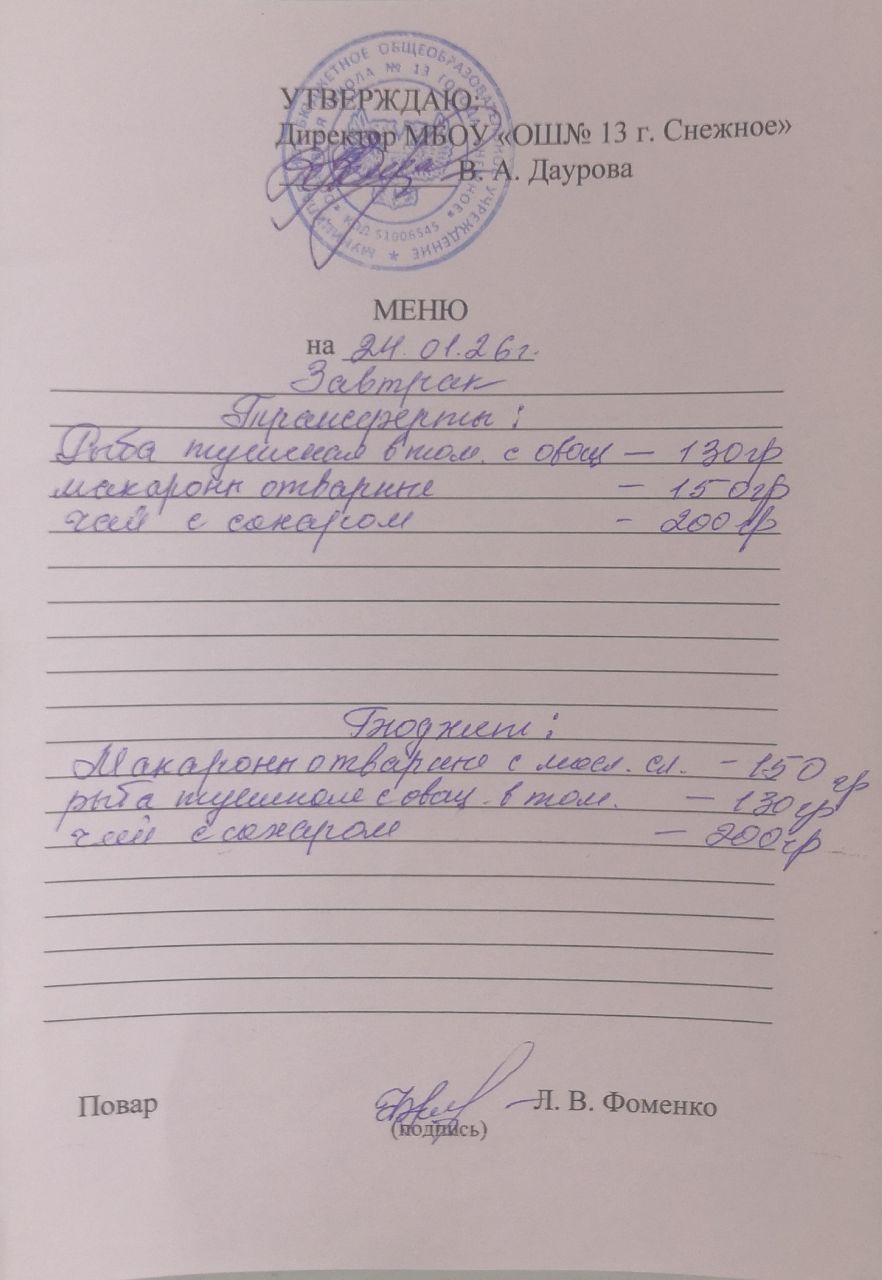 УТВЕРЖДАЮ:
Директор МБОУ «ОШ№ 13 г. Снежное»
В. А. Даурова
МУНИЦИПАЛЬНОЕ БЮДЖЕТНОЕ ОБЩЕОБРАЗОВАТЕЛЬНОЕ УЧРЕЖДЕНИЕ
ШКОЛА № 13 ГОРОДА СНЕЖНОЕ
КОД 51006545
МЕНЮ
на 24.01.26г.
Завтрак
Трансферты:
Рыба тушеная в том. с овощ — 130гр
макароны отварные — 150гр
чай с сахаром - 200гр
Бюджет:
Макароны отварные с масл. сл. - 150 гр
рыба тушеная с овощ. в том. — 130гр
чай с сахаром — 200гр
Повар Л. В. Фоменко
(подпись)